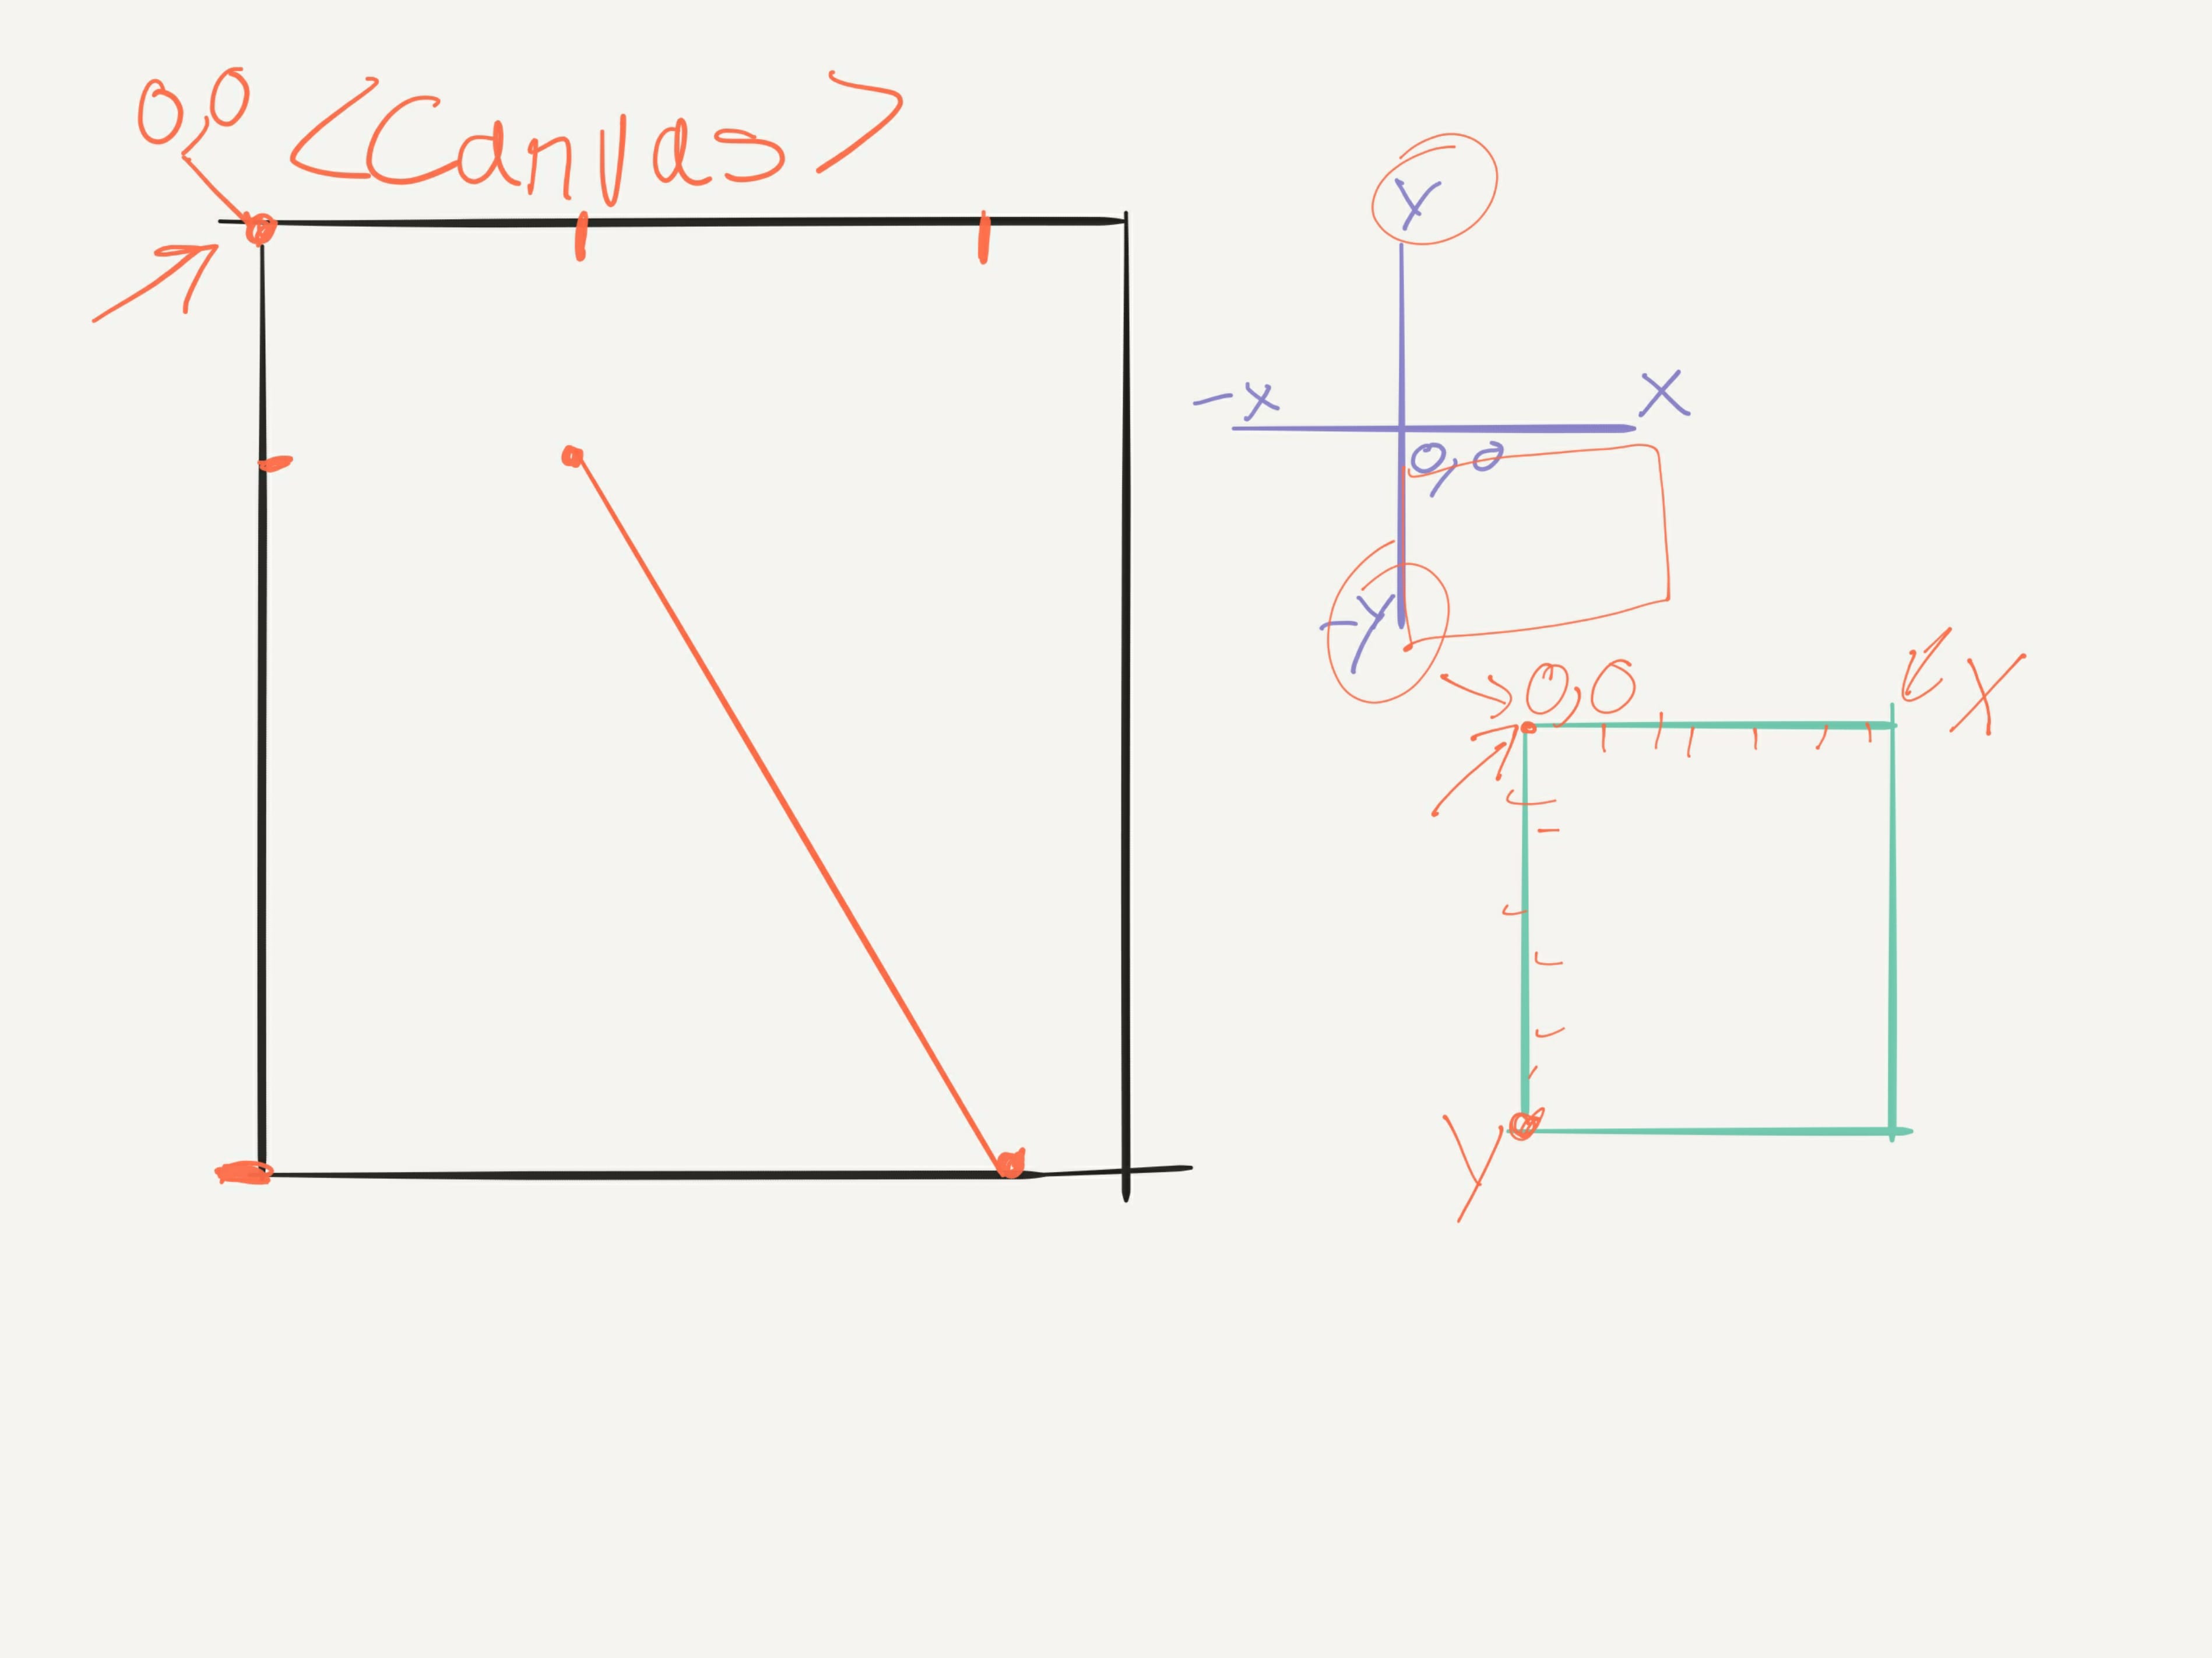 0,0
<Canvas>
Y
-x
X
0,0
-Y
0,0
X
Y